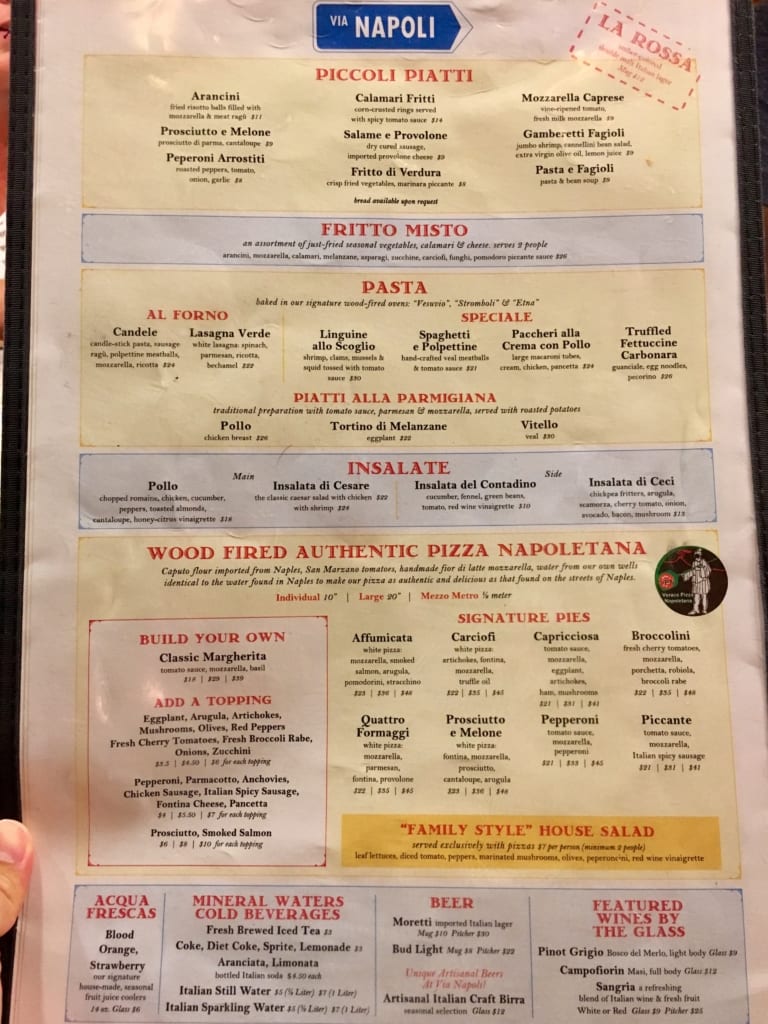 VIA NAPOLI
LA ROSSA
double malt Italian lager
PICCOLI PIATTI
Arancini
fried risotto balls filled with
mozzarella & meat ragù $11
Prosciutto e Melone
prosciutto di parma, cantaloupe $9
Peperoni Arrostiti
roasted peppers, tomato,
onion, garlic $8
Calamari Fritti
corn-crusted rings served
with spicy tomato sauce $14
Salame e Provolone
dry cured sausage,
imported provolone cheese $9
Fritto di Verdura
crisp fried vegetables, marinara piccante $8
bread available upon request
Mozzarella Caprese
vine-ripened tomato,
fresh milk mozzarella $9
Gamberetti Fagioli
jumbo shrimp, cannellini bean salad,
extra virgin olive oil, lemon juice $9
Pasta e Fagioli
pasta & bean soup $9
FRITTO MISTO
an assortment of just-fried seasonal vegetables, calamari & cheese. serves 2 people
arancini, mozzarella, calamari, melanzane, asparagi, zucchine, carciofi, funghi, pomodoro piccante sauce $26
PASTA
baked in our signature wood-fired ovens: "Vesuvio", "Stromboli" & "Etna"
AL FORNO
Candele
candle-stick pasta, sausage
ragù, polpettine meatballs,
mozzarella, ricotta $24
Lasagna Verde
white lasagna: spinach,
parmesan, ricotta,
bechamel $22
SPECIALE
Linguine
allo Scoglio
shrimp, clams, mussels &
squid tossed with tomato
sauce $30
Spaghetti
e Polpettine
hand-crafted veal meatballs
& tomato sauce $21
Paccheri alla
Crema con Pollo
large macaroni tubes,
cream, chicken, pancetta $24
Truffled
Fettuccine
Carbonara
guanciale, egg noodles,
pecorino $26
PIATTI ALLA PARMIGIANA
traditional preparation with tomato sauce, parmesan & mozzarella, served with roasted potatoes
Pollo
chicken breast $26
Tortino di Melanzane
eggplant $22
Vitello
veal $30
INSALATE
Main
Pollo
chopped romaine, chicken, cucumber,
peppers, toasted almonds,
cantaloupe, honey-citrus vinaigrette $18
Insalata di Cesare
the classic caesar salad with chicken $22
with shrimp $24
Side
Insalata del Contadino
cucumber, fennel, green beans,
tomato, red wine vinaigrette $10
Insalata di Ceci
chickpea fritters, arugula,
scamorza, cherry tomato, onion,
avocado, bacon, mushroom $13
WOOD FIRED AUTHENTIC PIZZA NAPOLETANA
Caputo flour imported from Naples, San Marzano tomatoes, handmade fior di latte mozzarella, water from our own wells
identical to the water found in Naples to make our pizza as authentic and delicious as that found on the streets of Naples.
Individual 10" | Large 20" | Mezzo Metro ½ meter
Verace Pizza
Napoletana
BUILD YOUR OWN
Classic Margherita
tomato sauce, mozzarella, basil
$18 | $29 | $39
ADD A TOPPING
Eggplant, Arugula, Artichokes,
Mushrooms, Olives, Red Peppers
Fresh Cherry Tomatoes, Fresh Broccoli Rabe,
Onions, Zucchini
$3.5 | $4.50 | $6 for each topping
Pepperoni, Parmacotto, Anchovies,
Chicken Sausage, Italian Spicy Sausage,
Fontina Cheese, Pancetta
$4 | $5.50 | $7 for each topping
Prosciutto, Smoked Salmon
$6 | $8 | $10 for each topping
SIGNATURE PIES
Affumicata
white pizza:
mozzarella, smoked
salmon, arugula,
pomodorini, stracchino
$23 | $36 | $48
Carciofi
white pizza:
artichokes, fontina,
mozzarella,
truffle oil
$22 | $35 | $45
Capricciosa
tomato sauce,
mozzarella,
eggplant,
artichokes,
ham, mushrooms
$21 | $31 | $41
Broccolini
fresh cherry tomatoes,
mozzarella,
porchetta, robiola,
broccoli rabe
$22 | $35 | $48
Quattro
Formaggi
white pizza:
mozzarella,
parmesan,
fontina, provolone
$22 | $35 | $45
Prosciutto
e Melone
white pizza:
fontina, mozzarella,
prosciutto,
cantaloupe, arugula
$23 | $36 | $48
Pepperoni
tomato sauce,
mozzarella,
pepperoni
$21 | $33 | $45
Piccante
tomato sauce,
mozzarella,
Italian spicy sausage
$21 | $31 | $41
"FAMILY STYLE" HOUSE SALAD
served exclusively with pizzas $7 per person (minimum 2 people)
leaf lettuces, diced tomato, peppers, marinated mushrooms, olives, peperoncini, red wine vinaigrette
ACQUA
FRESCAS
Blood
Orange,
Strawberry
our signature
house-made, seasonal
fruit juice coolers
14 oz. Glass $6
MINERAL WATERS
COLD BEVERAGES
Fresh Brewed Iced Tea $3
Coke, Diet Coke, Sprite, Lemonade $3
Aranciata, Limonata
bottled Italian soda $4.50 each
Italian Still Water $5 (½ Liter) $7 (1 Liter)
Italian Sparkling Water $5 (½ Liter) $7 (1 Liter)
BEER
Moretti imported Italian lager
Mug $10 Pitcher $30
Bud Light Mug $8 Pitcher $22
Unique Artisanal Beers
At Via Napoli!
Artisanal Italian Craft Birra
seasonal selection Glass $12
FEATURED
WINES BY
THE GLASS
Pinot Grigio Bosco del Merlo, light body Glass $9
Campofiorin Masi, full body Glass $12
Sangria a refreshing
blend of Italian wine & fresh fruit
White or Red Glass $9 Pitcher $25